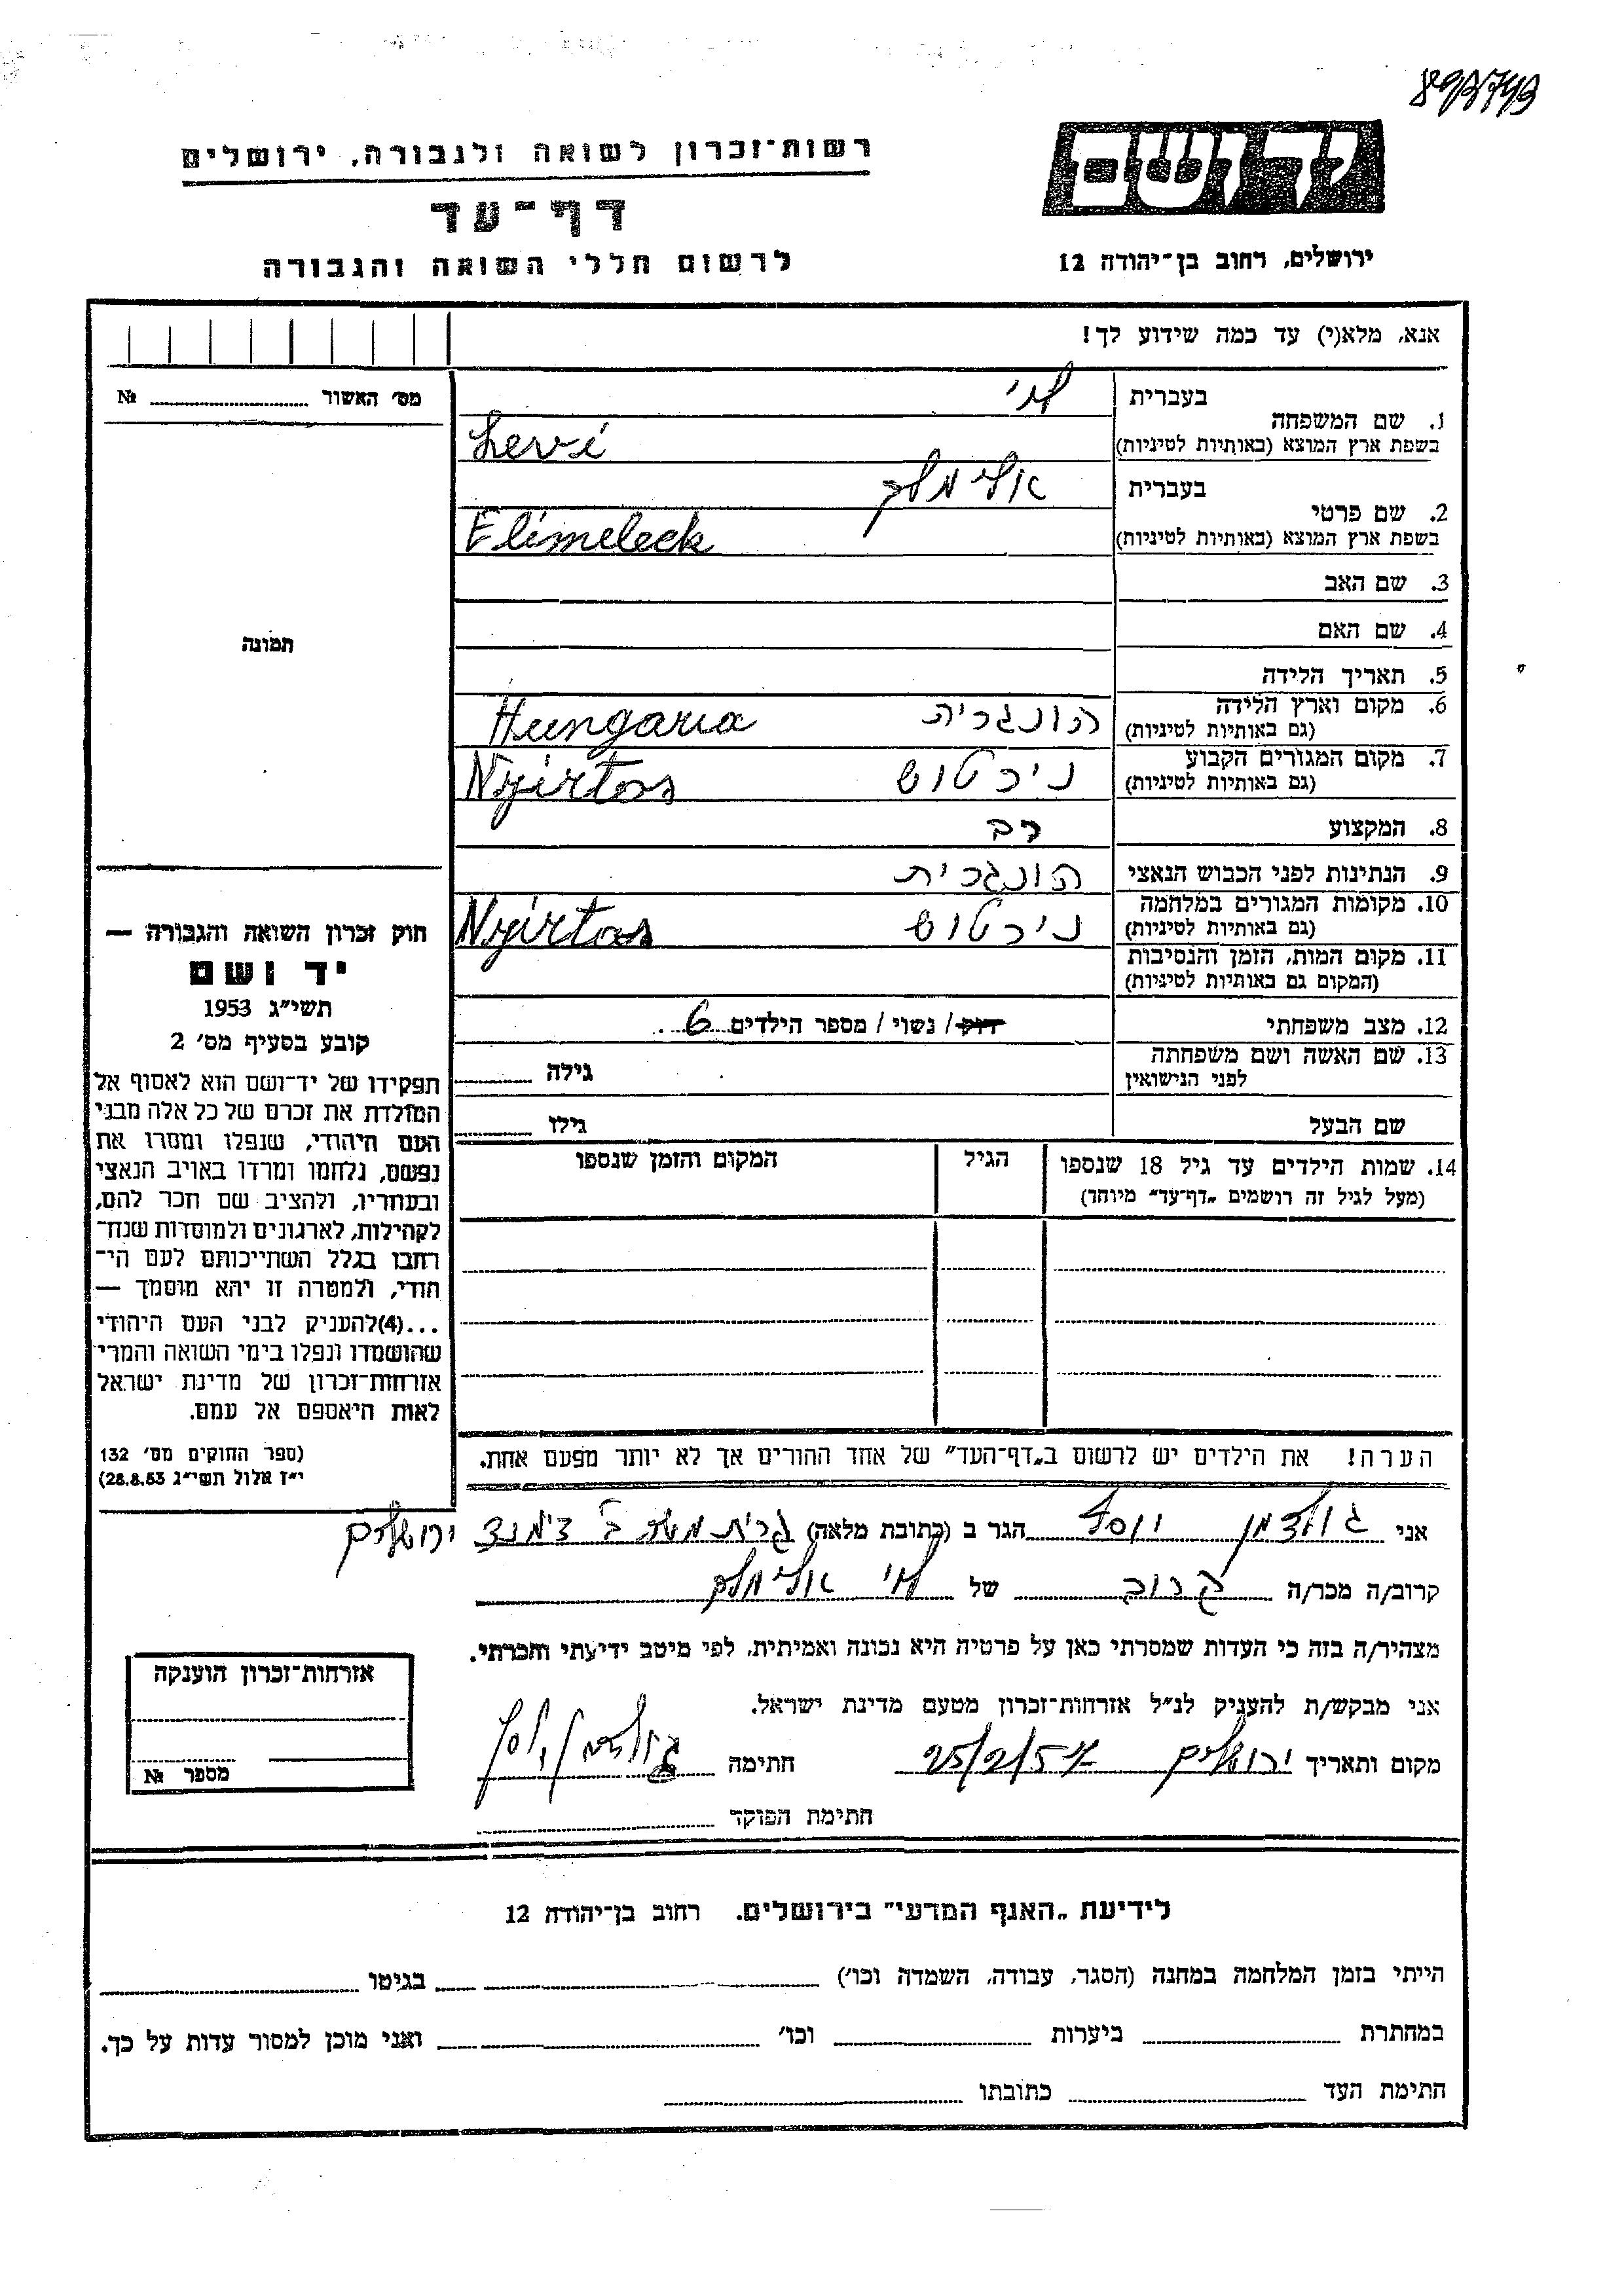 893743
רשות־זכרון לשואה ולגבורה, ירושלים
דף־עד
לרשום חללי השואה והגבורה
ידושם
ירושלים, רחוב בן־יהודה 12
אנא, מלא(י) עד כמה שידוע לך!
מס׳ האשור № 
תמונה
חוק זכרון השואה והגבורה —
יד ושם
תשי״ג 1953
קובע בסעיף מס׳ 2
תפקידו של יד־ושם הוא לאסוף אל
המולדת את זכרם של כל אלה מבני
העם היהודי, שנפלו ומסרו את
נפשם, נלחמו ומרדו באויב הנאצי
ובעוזריו, ולהציב שם וזכר להם,
לקהילות, לארגונים ולמוסדות שנח־
רבו בגלל השתייכותם לעם הי־
הודי, ולמטרה זו יהא מוסמך —
...(4)להעניק לבני העם היהודי
שהושמדו ונפלו בימי השואה והמרי
אזרחות־זכרון של מדינת ישראל
לאות היאספם אל עמם.
(ספר החוקים מס׳ 132
י״ז אלול תשי״ג 28.8.53)
בעברית לוי
1. שם המשפחה
בשפת ארץ המוצא (באותיות לטיניות) Levi
בעברית אלימלך
2. שם פרטי
בשפת ארץ המוצא (באותיות לטיניות) Elimeleck
3. שם האב
4. שם האם
5. תאריך הלידה
6. מקום וארץ הלידה
(גם באותיות לטיניות) הונגרית Hungaria
7. מקום המגורים הקבוע
(גם באותיות לטיניות) נירטוש Nyirtos
8. המקצוע רב
9. הנתינות לפני הכבוש הנאצי הונגרית
10. מקומות המגורים במלחמה
(גם באותיות לטיניות) נירטוש Nyirtos
11. מקום המות, הזמן והנסיבות
(המקום גם באותיות לטיניות)
12. מצב משפחתי רווק / נשוי / מספר הילדים 6
13. שם האשה ושם משפחתה
לפני הנישואין גילה
שם הבעל גילו
14. שמות הילדים עד גיל 18 שנספו הגיל המקום והזמן שנספו
(מעל לגיל זה רושמים „דף־עד״ מיוחד)
הערה! את הילדים יש לרשום ב„דף־העד״ של אחד ההורים אך לא יותר מפעם אחת.
אני גולדמן יוסף הגר ב (כתובת מלאה) קרית מטרסדורף ירושלים
קרוב/ה מכר/ה קרוב של לוי אלימלך
מצהיר/ה בזה כי העדות שמסרתי כאן על פרטיה היא נכונה ואמיתית, לפי מיטב ידיעתי והכרתי.
אני מבקש/ת להעניק לנ״ל אזרחות־זכרון מטעם מדינת ישראל.
מקום ותאריך ירושלים 25/2/57 חתימה גולדמן יוסף
חתימת הפוקד
אזרחות־זכרון הוענקה
מספר №
לידיעת „האגף המדעי״ בירושלים. רחוב בן־יהודה 12
הייתי בזמן המלחמה במחנה (הסגר, עבודה, השמדה וכו׳) בגיטו
במחתרת ביערות וכו׳ ואני מוכן למסור עדות על כך.
חתימת העד כתובתו